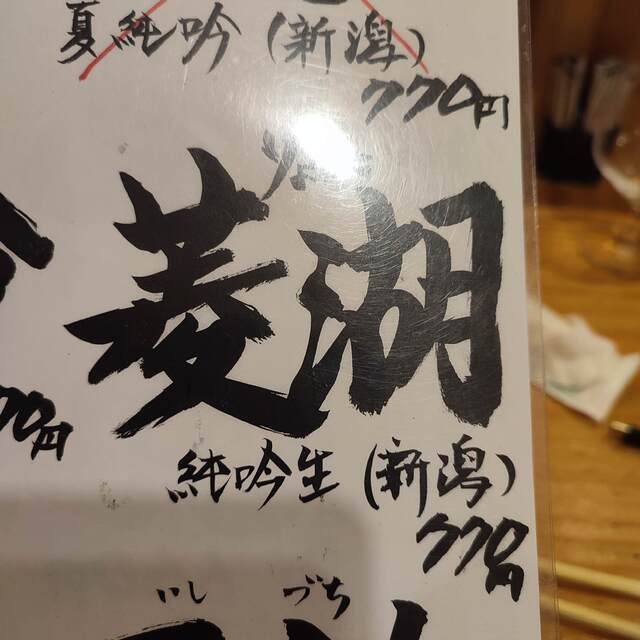 夏純吟（新潟）
770円
菱湖
純吟生（新潟）
770円
いし づち